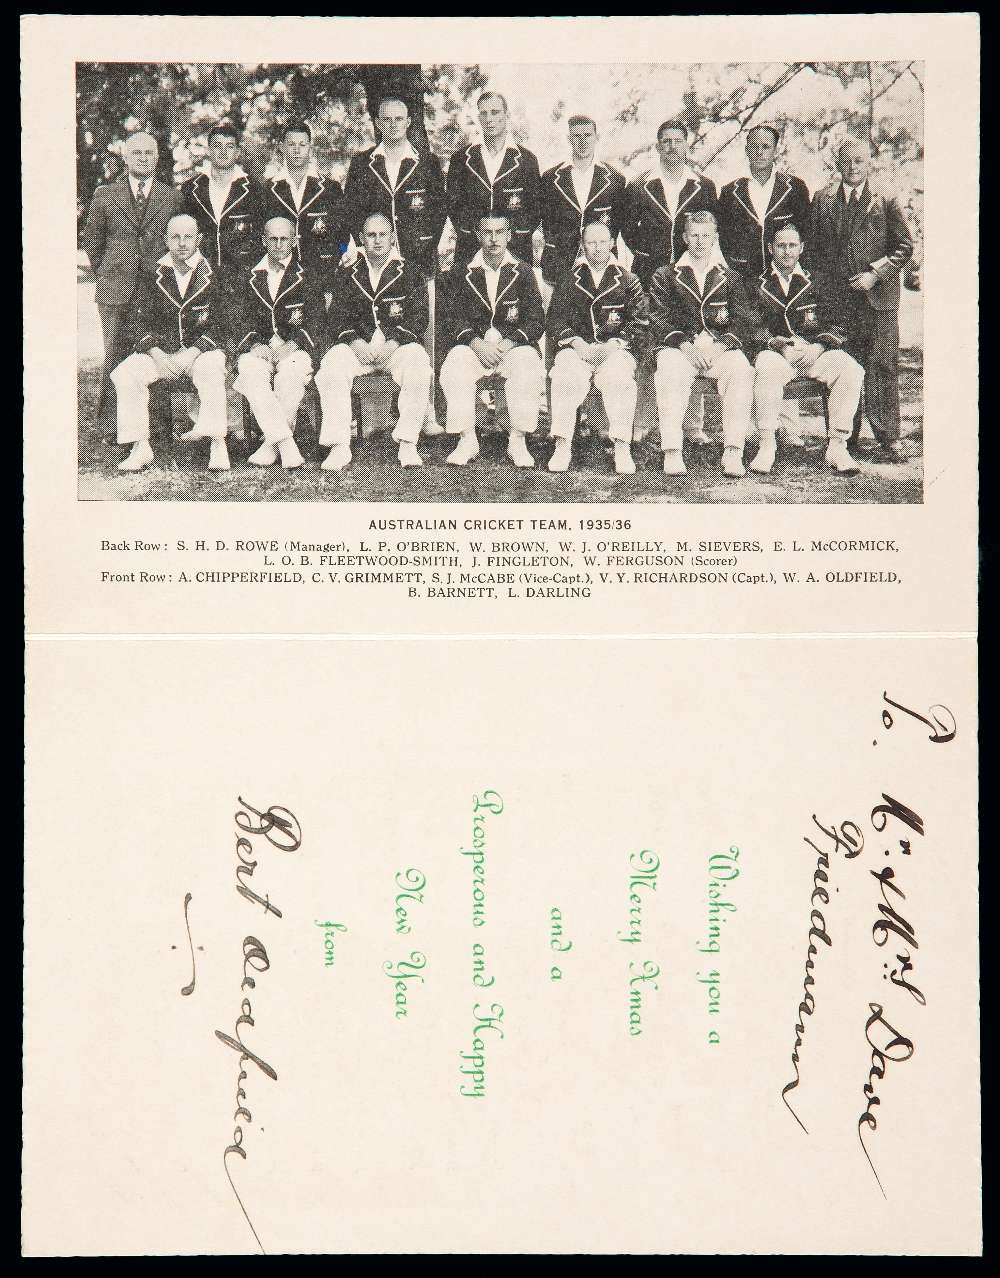 AUSTRALIAN CRICKET TEAM, 1935/36
Back Row: S. H. D. ROWE (Manager), L. P. O'BRIEN, W. BROWN, W. J. O'REILLY, M. SIEVERS, E. L. McCORMICK,
L. O. B. FLEETWOOD-SMITH, J. FINGLETON, W. FERGUSON (Scorer)
Front Row: A. CHIPPERFIELD, C. V. GRIMMETT, S. J. McCABE (Vice-Capt.), V. Y. RICHARDSON (Capt.), W. A. OLDFIELD,
B. BARNETT, L. DARLING
To. Mr. & Mrs Dave
Friedmann
Wishing you a
Merry Xmas
and a
Prosperous and Happy
New Year
from
Bert Oldfield